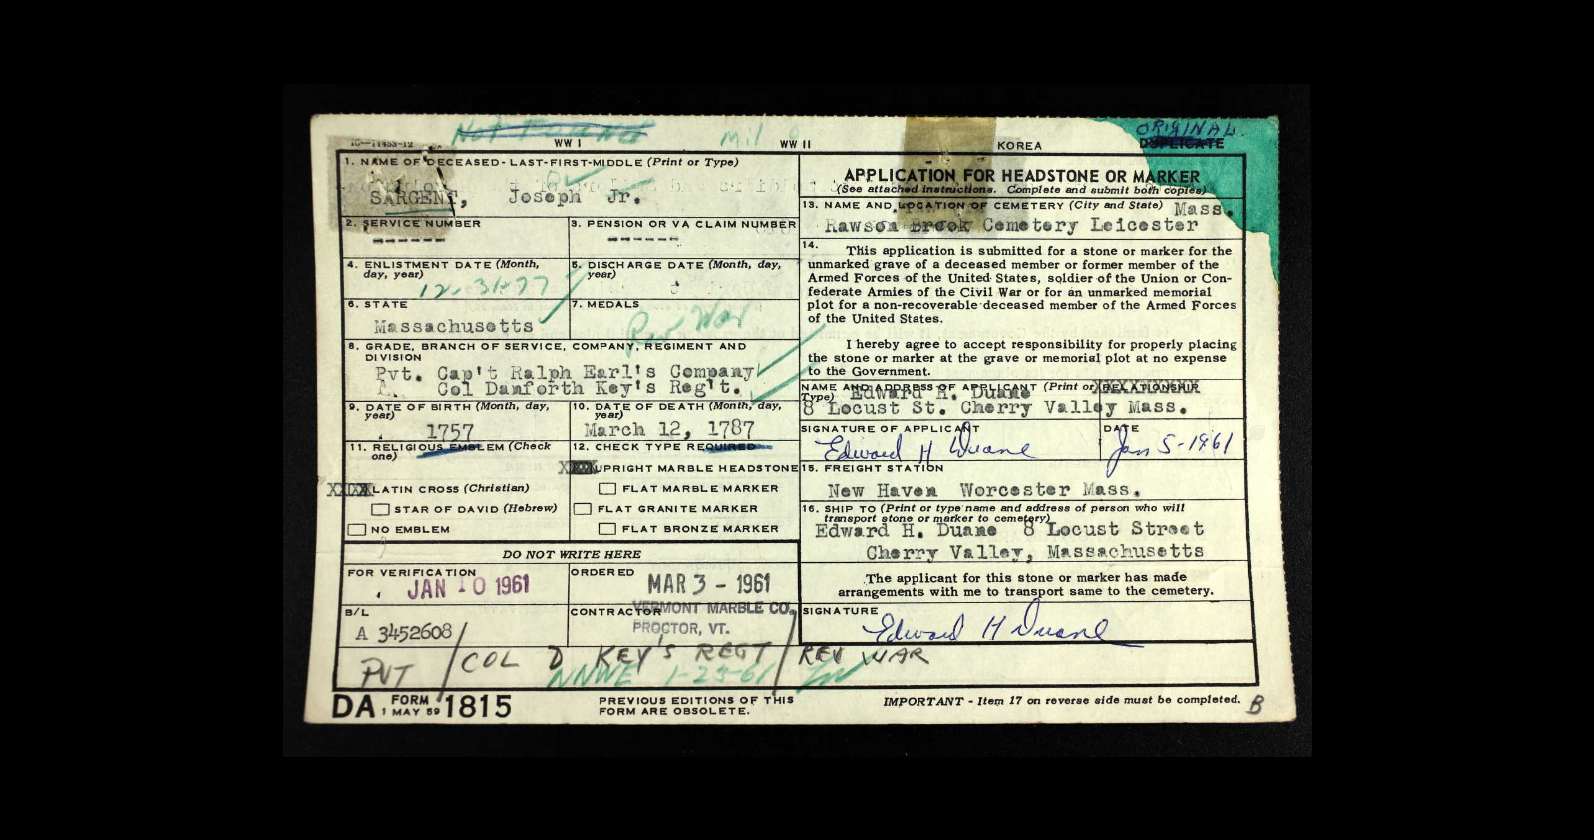 Not Found
Mil
ORIGINAL
16—11453-12 WW I WW II KOREA DUPLICATE
1. NAME OF DECEASED - LAST-FIRST-MIDDLE (Print or Type)
SARGENT, Joseph Jr.
2. SERVICE NUMBER
-------
3. PENSION OR VA CLAIM NUMBER
-------
4. ENLISTMENT DATE (Month, day, year)
12-31-77
5. DISCHARGE DATE (Month, day, year)
6. STATE
Massachusetts
7. MEDALS
Rev War
8. GRADE, BRANCH OF SERVICE, COMPANY, REGIMENT AND
DIVISION
Pvt. Cap't Ralph Earl's Company
Col Danforth Key's Reg't.
9. DATE OF BIRTH (Month, day, year)
1757
10. DATE OF DEATH (Month, day, year)
March 12, 1787
11. RELIGIOUS EMBLEM (Check one)
XXXX LATIN CROSS (Christian)
STAR OF DAVID (Hebrew)
NO EMBLEM
12. CHECK TYPE REQUIRED
XXXX UPRIGHT MARBLE HEADSTONE
FLAT MARBLE MARKER
FLAT GRANITE MARKER
FLAT BRONZE MARKER
DO NOT WRITE HERE
FOR VERIFICATION
JAN 10 1961
ORDERED
MAR 3 - 1961
B/L
A 3452608
CONTRACTOR
VERMONT MARBLE CO.
PROCTOR, VT.
APPLICATION FOR HEADSTONE OR MARKER
(See attached instructions. Complete and submit both copies)
13. NAME AND LOCATION OF CEMETERY (City and State) Mass.
Rawson Brook Cemetery Leicester
14. This application is submitted for a stone or marker for the
unmarked grave of a deceased member or former member of the
Armed Forces of the United States, soldier of the Union or Con-
federate Armies of the Civil War or for an unmarked memorial
plot for a non-recoverable deceased member of the Armed Forces
of the United States.
I hereby agree to accept responsibility for properly placing
the stone or marker at the grave or memorial plot at no expense
to the Government.
NAME AND ADDRESS OF APPLICANT (Print or Type)
XXXXXXXXXX RELATIONSHIP
Edward H. Duane
8 Locust St. Cherry Valley Mass.
SIGNATURE OF APPLICANT
Edward H Duane
DATE
Jan 5-1961
15. FREIGHT STATION
New Haven Worcester Mass.
16. SHIP TO (Print or type name and address of person who will
transport stone or marker to cemetery)
Edward H. Duane 8 Locust Street
Cherry Valley, Massachusetts
The applicant for this stone or marker has made
arrangements with me to transport same to the cemetery.
SIGNATURE
Edward H Duane
PVT / COL D KEY'S REGT / REV WAR
NNWE 1-23-61
DA FORM 1 MAY 59 1815
PREVIOUS EDITIONS OF THIS
FORM ARE OBSOLETE.
IMPORTANT - Item 17 on reverse side must be completed.
B